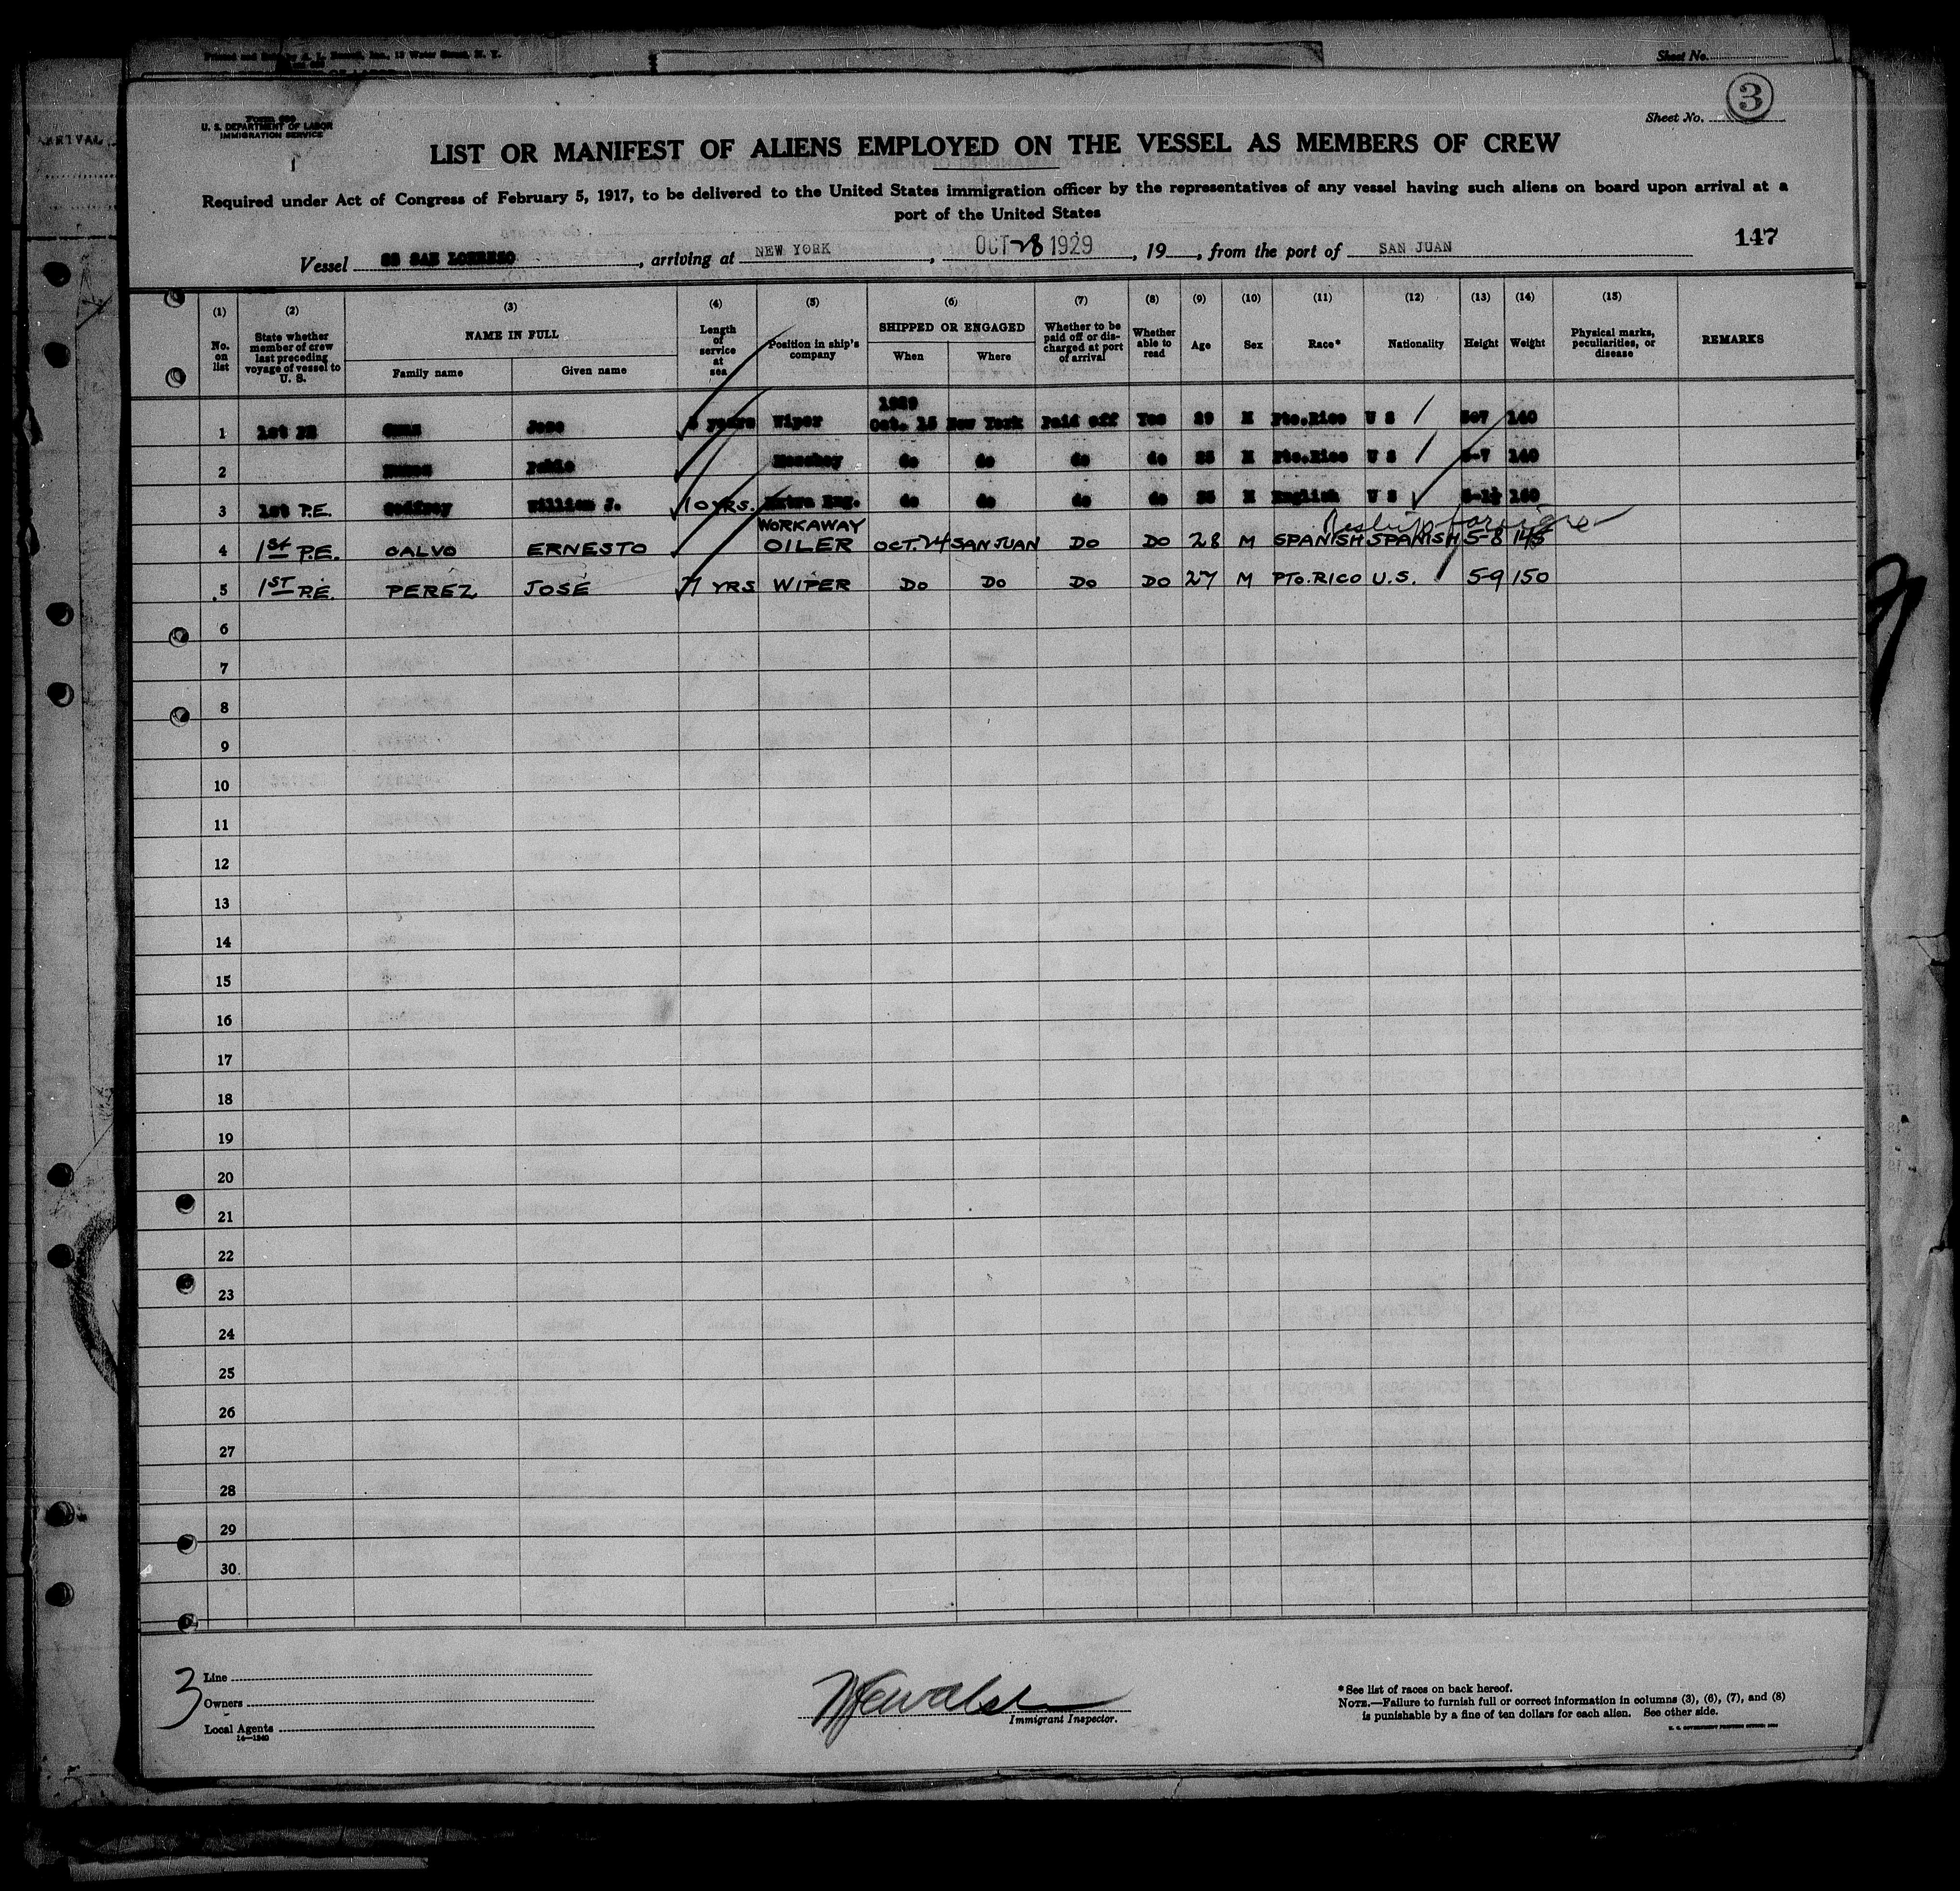 Sheet No.
Form 680
U. S. DEPARTMENT OF LABOR
IMMIGRATION SERVICE
Sheet No. 3
LIST OR MANIFEST OF ALIENS EMPLOYED ON THE VESSEL AS MEMBERS OF CREW
Required under Act of Congress of February 5, 1917, to be delivered to the United States immigration officer by the representatives of any vessel having such aliens on board upon arrival at a
port of the United States
147
Vessel SS SAN LORENZO, arriving at NEW YORK, OCT 28 1929, 19, from the port of SAN JUAN
(1) (2) (3) (4) (5) (6) (7) (8) (9) (10) (11) (12) (13) (14) (15)
No. on list
State whether member of crew last preceding voyage of vessel to U. S.
NAME IN FULL
Family name
Given name
Length of service at sea
Position in ship's company
SHIPPED OR ENGAGED
When
Where
Whether to be paid off or discharged at port of arrival
Whether able to read
Age
Sex
Race*
Nationality
Height
Weight
Physical marks, peculiarities, or disease
REMARKS
1929
1 1st PE Jose years Wiper Oct. 15 New York Paid off Yes 29 M Pto.Rico U S 5-7 140
2 Pablo Messboy do do do do 25 M Pto.Rico U S 5-7 140
3 1st P.E. Godfrey William J. 10 YRS. Extra Eng. do do do do M English U S 160
WORKAWAY
Reship foreign
4 1ST P.E. CALVO ERNESTO OILER OCT. 24 SAN JUAN DO DO 28 M SPANISH SPANISH 5-8 145
5 1ST P.E. PEREZ JOSE 7 YRS WIPER DO DO DO DO 27 M PTO.RICO U.S. 5-9 150
6
7
8
9
10
11
12
13
14
15
16
17
18
19
20
21
22
23
24
25
26
27
28
29
30
3
Line
Owners
Local Agents
14—1240
Immigrant Inspector.
*See list of races on back hereof.
NOTE.—Failure to furnish full or correct information in columns (3), (6), (7), and (8)
is punishable by a fine of ten dollars for each alien. See other side.